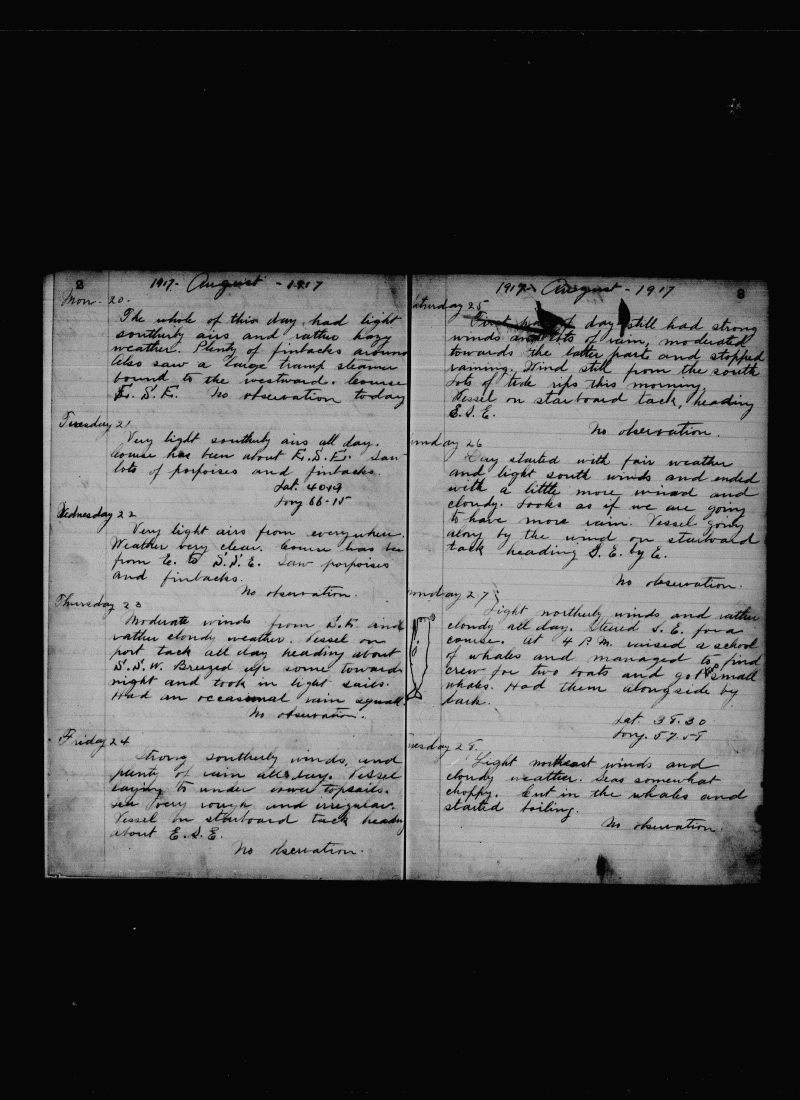 2
1917- August - 1917
Mon. 20.
The whole of this day had light
southerly airs and rather hazy
weather. Plenty of finbacks around
Also saw a large tramp steamer
bound to the westward. Course
E. S. E. No observation today
Tuesday 21
Very light southerly airs all day.
Course has been about E.S.E. Saw
lots of porpoises and finbacks.
Lat. 40-
Long 66-15
Wednesday 22
Very light airs from everywhere.
Weather very clear. Course has be
from E. to S.S.E. Saw porpoises
and finbacks.
No observation.
Thursday 23
Moderate winds from S.E. and
rather cloudy weather. Vessel on
port tack all day heading about
S.S.W. Breezed up some toward
night and took in light sails.
Had an occasional rain squall.
No observation.
Friday 24
Strong southerly winds, and
plenty of rain all day. Vessel
laying to under lower topsails.
Sea very rough and irregular.
Vessel on starboard tack heady
about E.S.E.
No observation.
1917- August - 1917
3
Saturday 25
First part of day still had strong
winds and lots of rain, moderated
towards the latter part and stopped
raining. Wind still from the south
Lots of tide rips this morning.
Vessel on starboard tack, heading
E.S.E.
No observation.
unday 26
Day started with fair weather
and light south winds and ended
with a little more wind and
cloudy. Looks as if we are going
to have more rain. Vessel going
along by the wind on starboard
tack heading S.E. by E.
No observation.
onday 27
Light northerly winds and rather
cloudy all day. Steered S.E. for a
course. At 4 P.M. raised a school
of whales and managed to find
crew for two boats and got small
whales. Had them alongside by
dark.
Lat. 38.30
Long. 57.58
uesday 28.
Light northeast winds and
cloudy weather. Seas somewhat
choppy. Cut in the whales and
started boiling.
No observation.